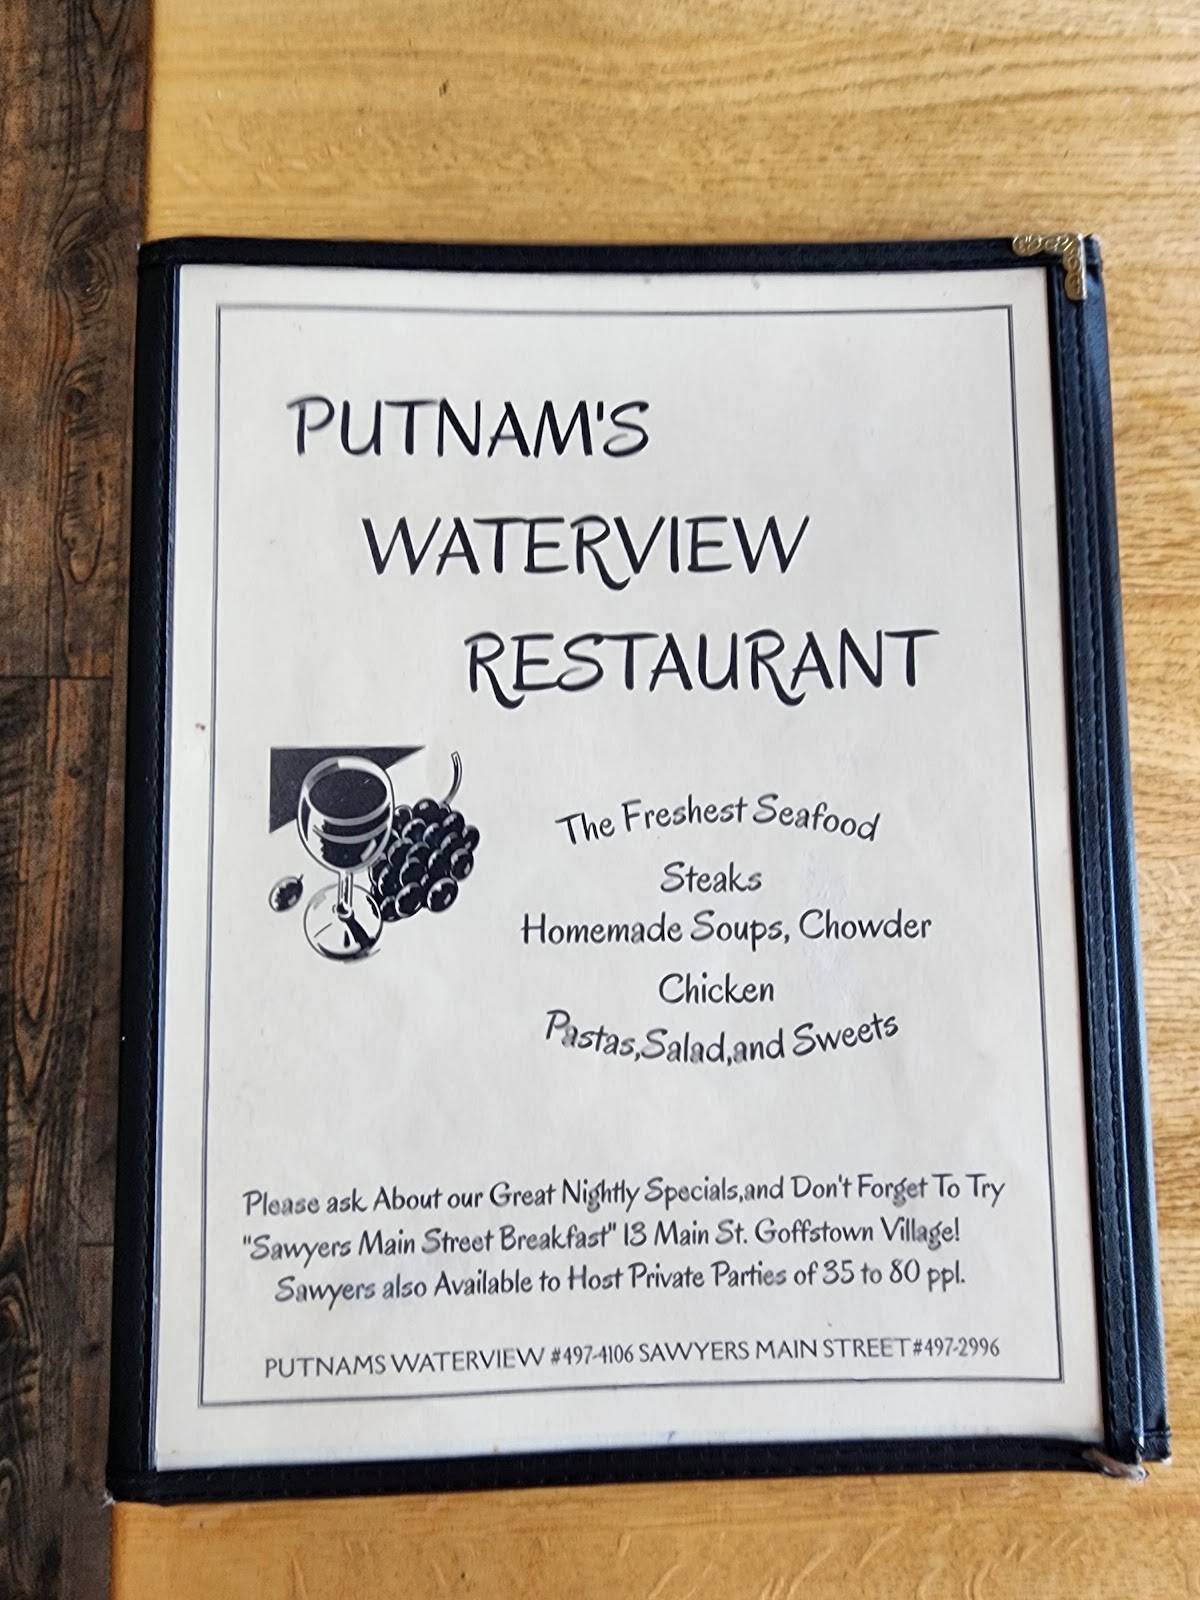 PUTNAM'S
WATERVIEW
RESTAURANT
The Freshest Seafood
Steaks
Homemade Soups, Chowder
Chicken
Pastas,Salad,and Sweets
Please ask About our Great Nightly Specials,and Don't Forget To Try
"Sawyers Main Street Breakfast" 13 Main St. Goffstown Village!
Sawyers also Available to Host Private Parties of 35 to 80 ppl.
PUTNAMS WATERVIEW #497-4106 SAWYERS MAIN STREET#497-2996